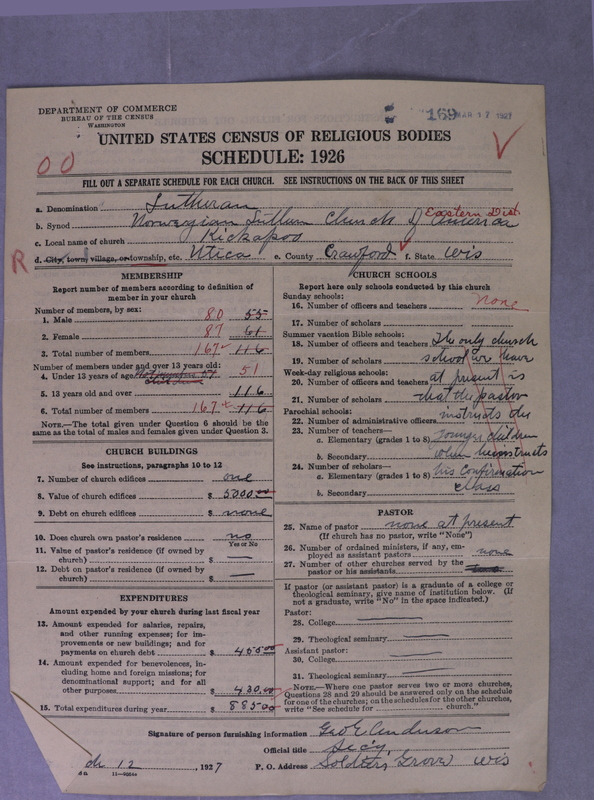 DEPARTMENT OF COMMERCE
BUREAU OF THE CENSUS
WASHINGTON
169 MAR 17 1927
UNITED STATES CENSUS OF RELIGIOUS BODIES
SCHEDULE: 1926
00
FILL OUT A SEPARATE SCHEDULE FOR EACH CHURCH. SEE INSTRUCTIONS ON THE BACK OF THIS SHEET
a. Denomination Lutheran
b. Synod Norwegian Luthern Church of America Eastern Dist.
c. Local name of church Kickapoo
R d. City, town, village, or township, etc. Utica e. County Crawford f. State Wis
MEMBERSHIP
Report number of members according to definition of
member in your church
Number of members, by sex:
1. Male 80 55
2. Female 87 61
3. Total number of members 167 116
Number of members under and over 13 years old:
4. Under 13 years of age 51
5. 13 years old and over 116
6. Total number of members 167 116
NOTE.—The total given under Question 6 should be
same as the total of males and females given under Question 3.
CHURCH BUILDINGS
See instructions, paragraphs 10 to 12
7. Number of church edifices one
8. Value of church edifices $ 5000.00
9. Debt on church edifices $ none
10. Does church own pastor's residence? no
Yes or No
11. Value of pastor's residence (if owned by
church) $ —
12. Debt on pastor's residence (if owned by
church) $ —
EXPENDITURES
Amount expended by your church during last fiscal year
13. Amount expended for salaries, repairs,
and other running expenses; for im-
provements or new buildings; and for
payments on church debt $ 455.00
14. Amount expended for benevolences, in-
cluding home and foreign missions; for
denominational support; and for all
other purposes $ 430.00
15. Total expenditures during year $ 885.00
CHURCH SCHOOLS
Report here only schools conducted by this church
Sunday schools:
16. Number of officers and teachers None
17. Number of scholars
Summer vacation Bible schools:
18. Number of officers and teachers The only church
19. Number of scholars school we have
Week-day religious schools:
20. Number of officers and teachers at present is
21. Number of scholars that the pastor
Parochial schools:
22. Number of administrative officers instructs the
23. Number of teachers—
a. Elementary (grades 1 to 8) younger children
b. Secondary when he instructs
24. Number of scholars—
a. Elementary (grades 1 to 8) his confirmation
b. Secondary class
PASTOR
25. Name of pastor none at present
(If church has no pastor, write "None")
26. Number of ordained ministers, if any, em-
ployed as assistant pastors none
27. Number of other churches served by the
pastor or his assistants
If pastor (or assistant pastor) is a graduate of a college or
theological seminary, give name of institution below. (If
not a graduate, write "No" in the space indicated.)
Pastor:
28. College
29. Theological seminary
Assistant pastor:
30. College
31. Theological seminary
NOTE.—Where one pastor serves two or more churches,
Questions 28 and 29 should be answered only on the schedule
for one of the churches; on the schedules for the other churches,
write "See schedule for church."
Signature of person furnishing information Geo E Anderson
Official title Secy.
ch 12, 1927 P. O. Address Soldiers Grove Wis